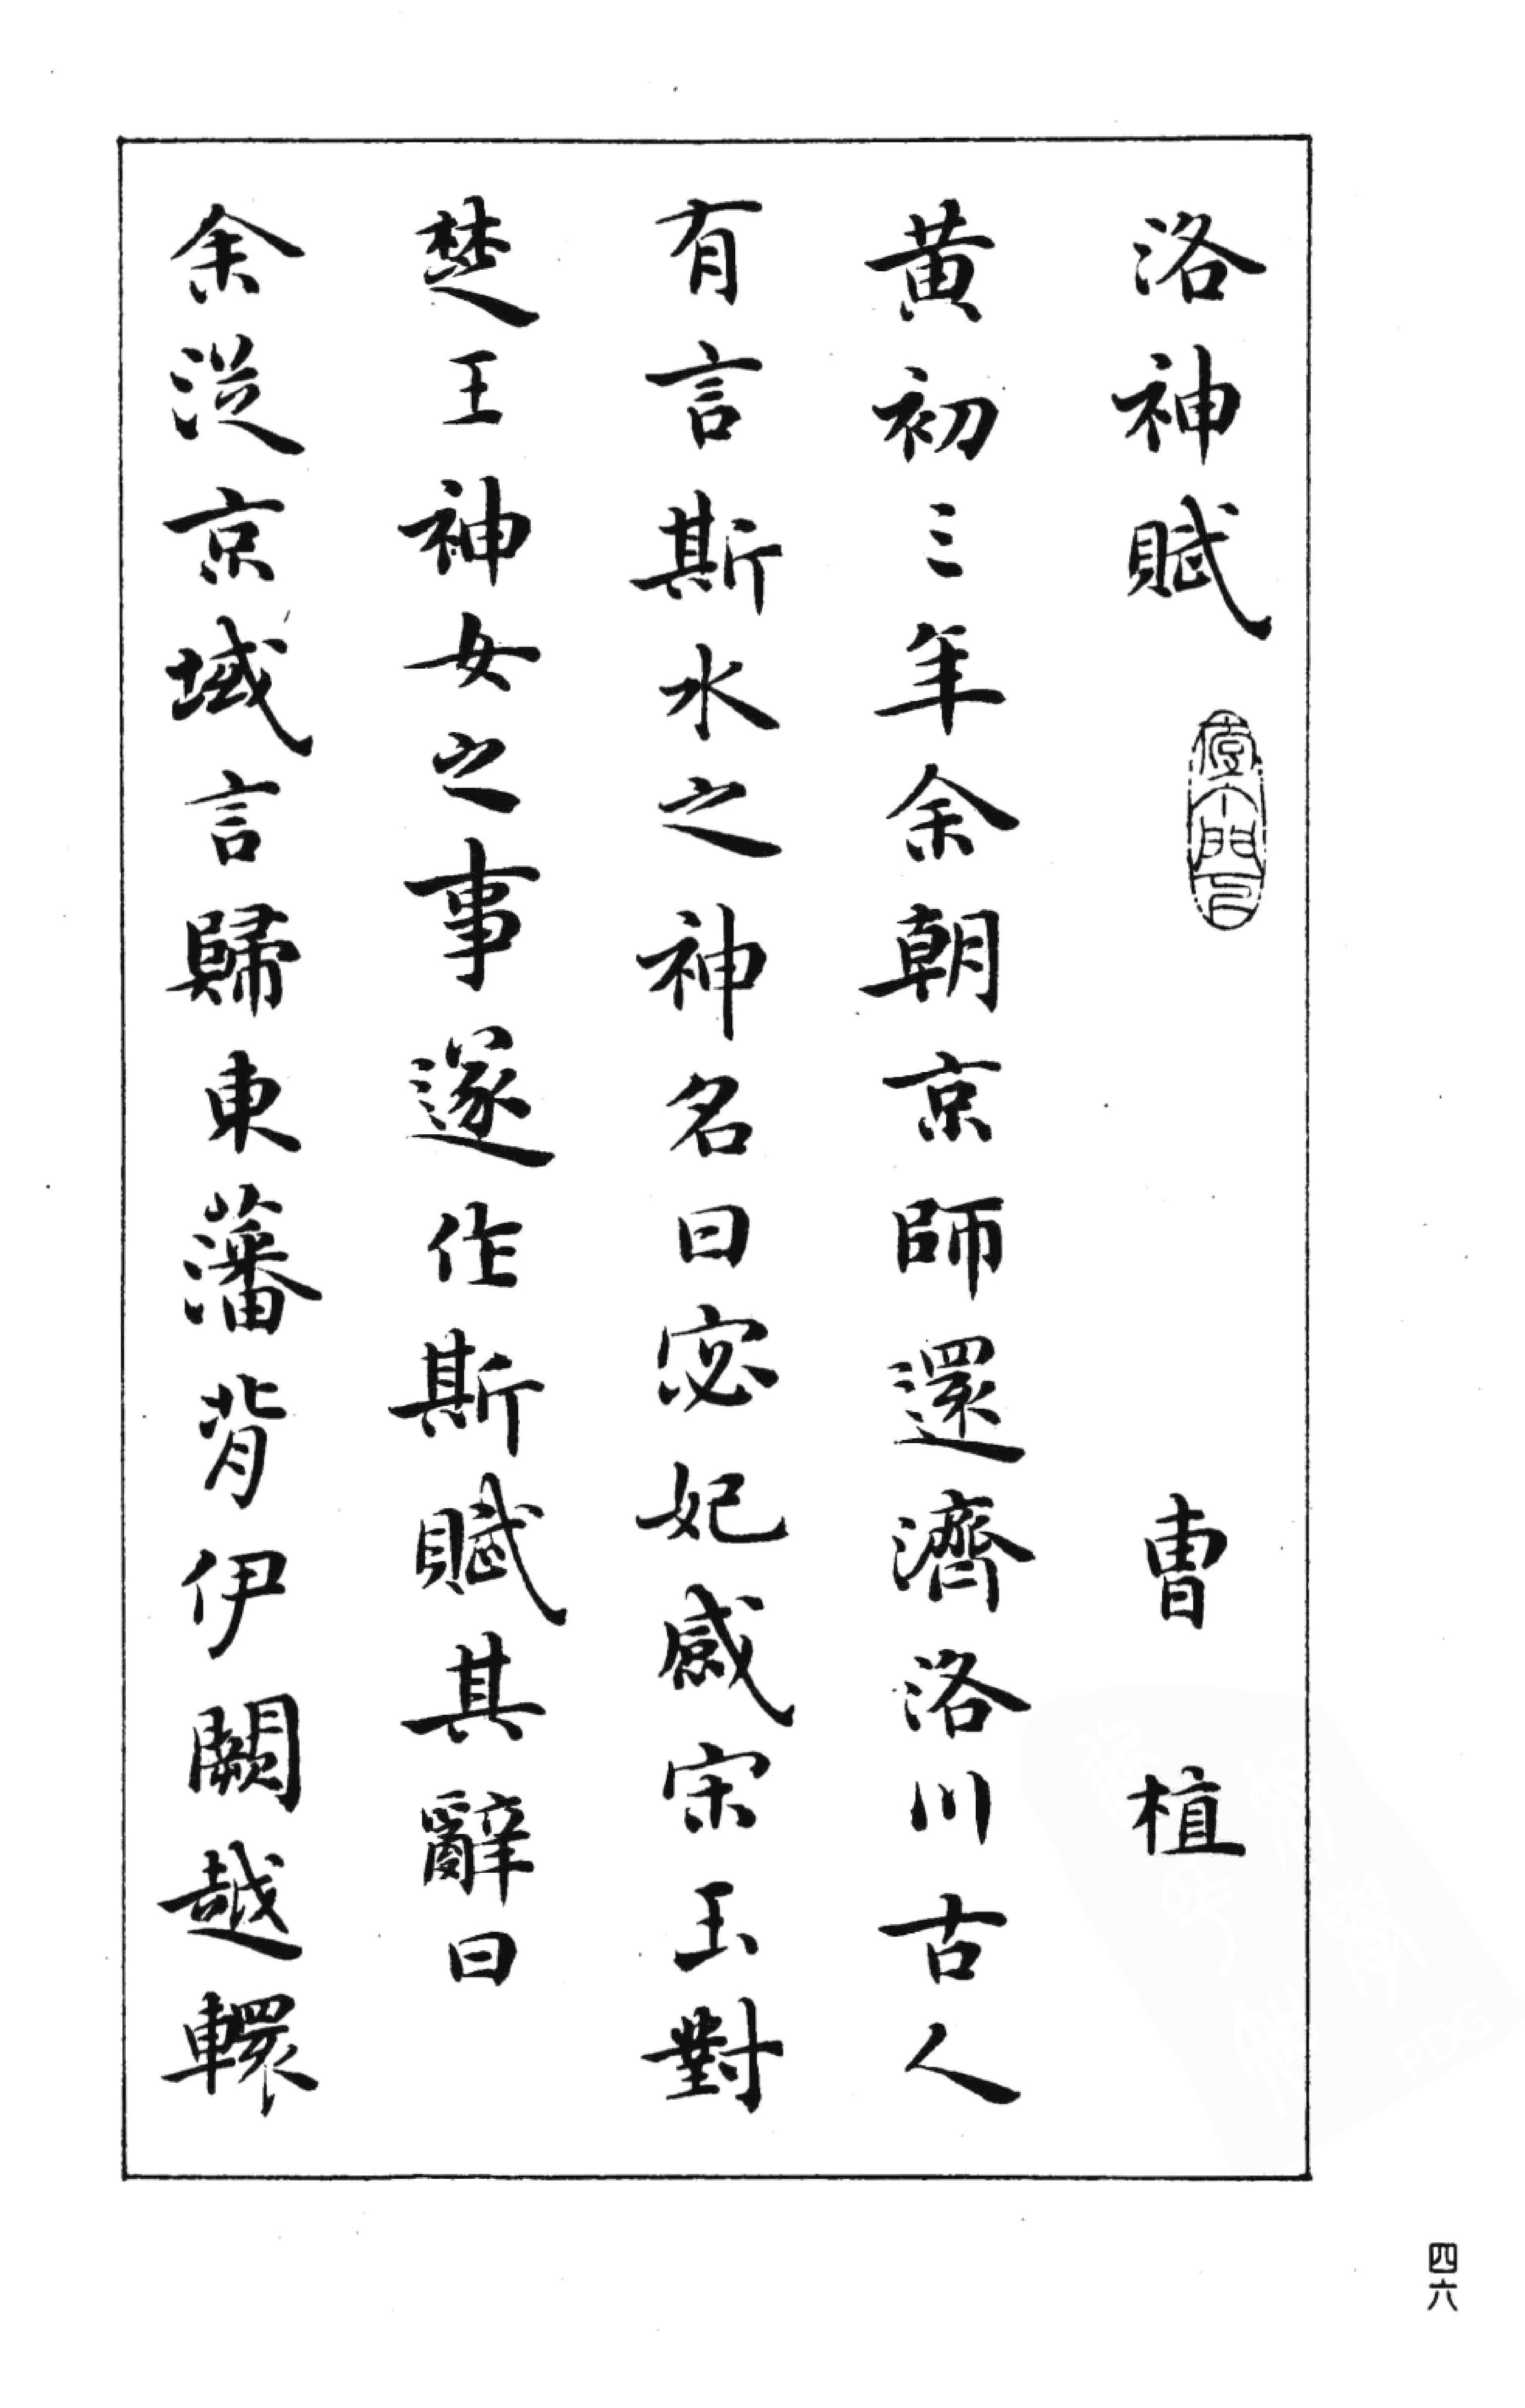 洛神賦 曹植
黃初三年余朝京師還濟洛川古人
有言斯水之神名曰宓妃感宋玉對
楚王神女之事遂作斯賦其辭曰
余從京域言歸東藩背伊闕越轘
四六